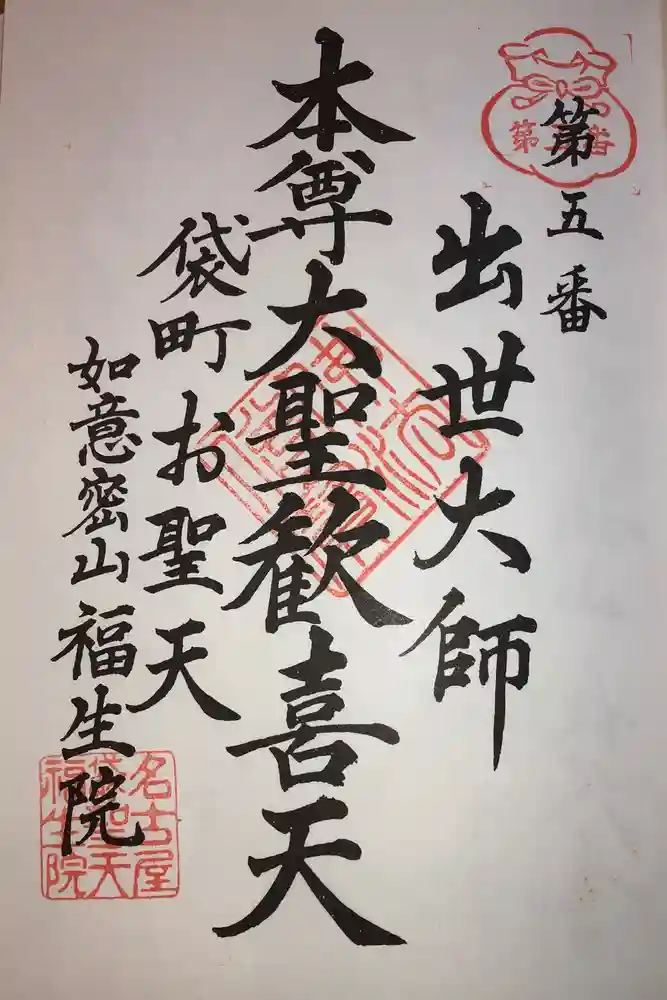 第五番
出世大師
本尊大聖歓喜天
袋町お聖天
如意密山福生院
名古屋
袋聖天
福生院